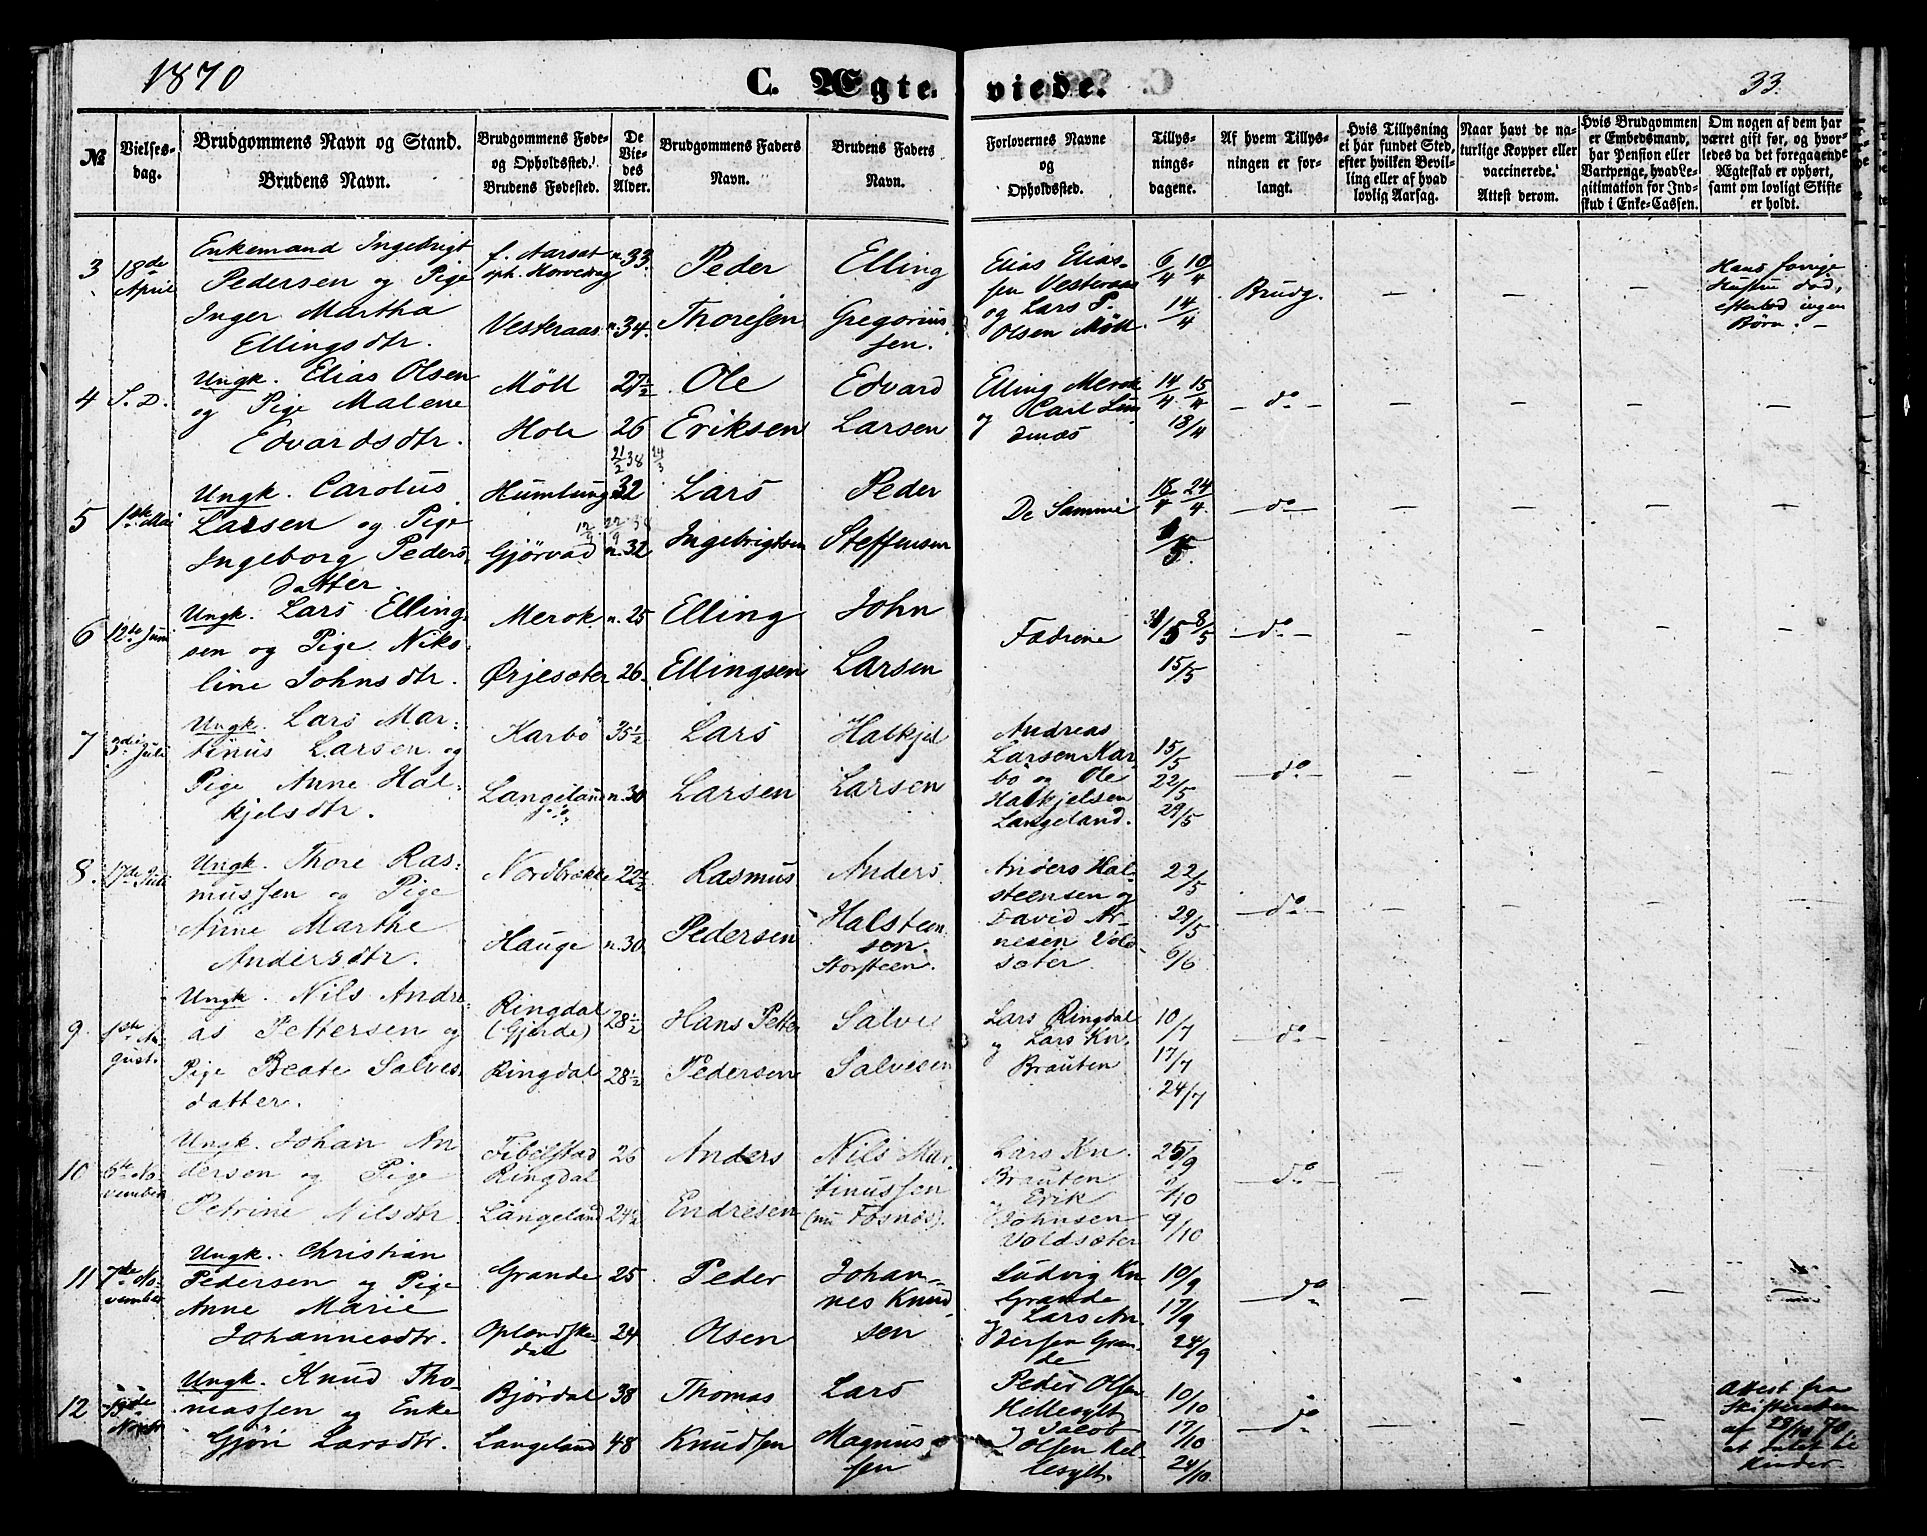 1870
C. Ægte-
viede.
33.
№
Vielses-
dag.
Brudgommens Navn og Stand.
Brudens Navn.
Brudgommens Føde-
og Opholdssted.
Brudens Fødested.
De
Vie-
des
Alder.
Brudgommens Faders
Navn.
Brudens Faders
Navn.
Forlovernes Navne
og
Opholdssted.
Tillys-
nings-
dagene.
Af hvem Tillys-
ningen er for-
langt.
Hvis Tillysning
ei har fundet Sted,
efter hvilken Bevil-
ling eller af hvad
lovlig Aarsag.
Naar havt de na-
turlige Kopper eller
vaccinerede.
Attest derom.
Hvis Brudgommen
er Embedsmand,
har Pension eller
Vartpenge, hvad Le-
gitimation for Ind-
skud i Enke-Cassen.
Om nogen af dem har
været gift før, og hvor-
ledes da det foregaaende
Ægteskab er ophørt,
samt om lovligt Skifte
er holdt.
3
18de
April
Enkemand Ingebrigt
Pedersen og Pige
Inger Martha
Ellingsdtr.
f. Aarsæt
oph.
Vesteraas
n. 33.
n. 34.
Peder
Thoresen
Elling
Gregorius-
sen.
Elias Elias-
sen Vesteraas
og Lars P.
Olsen Möll.
6/4 10/4
14/4
Brudg.
—
—
—
Hans forrige
Hustru död,
efterlod ingen
Börn. —
4
S. D.
Ungk. Elias Olsen
og Pige Malene
Edvardsdtr.
Möll
Hole
27½
26
Ole
Eriksen
Edvard
Larsen
Elling Merok
og Carl Lin-
denæs
14/4 15/4
18/4
— do —
—
—
—
—
5
1ste Mai
Ungk. Carolus
Larsen og Pige
Ingeborg Peders-
datter.
Humlung
Gjörvad
21/2 38 24/3
32
n. 32
Lars
Ingebrigtsen
Peder
Steffensen
De Samme
18/4 24/4
1/5.
— do —
—
—
—
—
6
12te Juni
Ungk. Lars Elling-
sen og Pige Niko-
line Johnsdtr.
Merok
Ørjesæter
n. 25
26
Elling
Ellingsen
John
Larsen
Fædrene
8/5
15/5
— do —
—
—
—
—
7
3die Juli
Ungk. Lars Mar-
tinus Larsen og
Pige Anne Hal-
kjelsdtr.
Karbö
Langeland
35½
n. 30
Lars
Larsen
Halkjel
Larsen
Andreas
Larsen Kar-
bö og Ole
Halkjelsen
Langeland.
15/5
22/5
29/5
— do —
—
—
—
—
8.
17de Juli
Ungk. Thore Ras-
mussen og Pige
Anne Marthe
Andersdtr.
Nordbrække
Hauge
22½
n. 30
Rasmus
Pedersen
Anders
Halsteen-
sen
Storsteen.
Anders Hal-
steensen og
David Ar-
nesen Vold-
sæter.
22/5
29/5
6/6
— do —
—
—
—
—
9.
1ste Au-
gust.
Ungk. Nils Andre-
as Pettersen og
Pige Beate Salves-
datter.
Ringdal
(Gjerde)
Ringdal
28½
28½
Hans Petter
Pedersen
Salve
Salvesen
Lars Ringdal
og Lars Kn.
Brauten
10/7
17/7
24/7
— do —
—
—
—
—
10
6te No-
vember
Ungk. Johan An-
dersen og Pige
Petrine Nilsdtr.
Fibelstad
Ringdal
Langeland
26
24½
Anders
Endresen
Nils Mar-
tinussen
(nu Fosnæs).
Lars Kn.
Brauten
og Erik
Johnsen
Voldsæter
25/9
2/10
9/10
— do —
—
—
—
—
11
7de No-
vember
Ungk. Christian
Pedersen og Pige
Anne Marie
Johannesdtr.
Grande
Oplendske-
dal
25
24
Peder
Olsen
Johan-
nes Knud-
sen
Ludvig Kn.
Grande
og Lars An-
dersen Gran-
de
10/9
17/9
24/9
— do —
—
—
—
—
12
Novbr
Ungk. Knud Tho-
massen og Enke
Gjöri Larsdtr.
Björdal
Langeland
38
48
Thomas
Knudsen
Lars
Magnus-
sen
Peder Olsen
Hellesylt
og Jacob
Olsen Hel-
lesylt.
10/10
17/10
24/10
— do —
—
—
—
Attest fra
Skifteretten